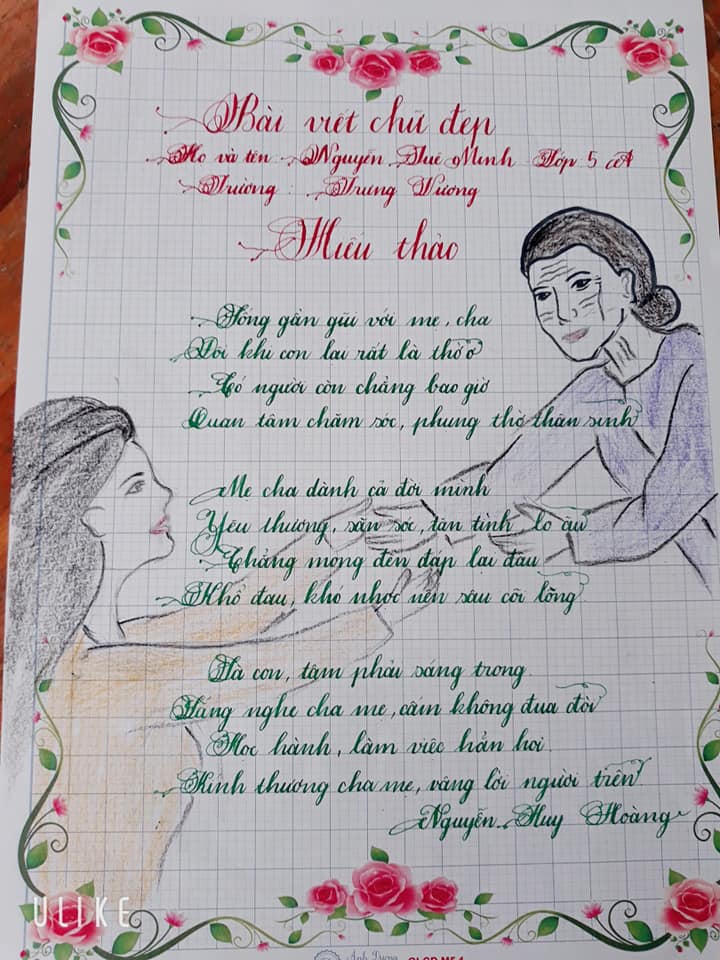 Bài viết chữ đẹp
Họ và tên: Nguyễn Tuê Minh Lớp 5
Trường: Trưng Vương
Hiếu thảo
Sống gần gũi với mẹ, cha
Đôi khi con lại rất là thờ ơ
Có người còn chẳng bao giờ
Quan tâm chăm sóc, phụng thờ thân sinh
Mẹ cha dành cả đời mình
Yêu thương, săn sóc, tận tình lo âu
Chẳng mong đền đáp lại đâu
Khổ đau, khó nhọc nén sâu cõi lòng
Là con, tâm phải sáng trong
Lắng nghe cha mẹ, cấm không đua đòi
Học hành, làm việc hẳn hoi.
Kính thương cha mẹ, vâng lời người trên
Nguyễn Huy Hoàng
ULIKE
Ánh Dương